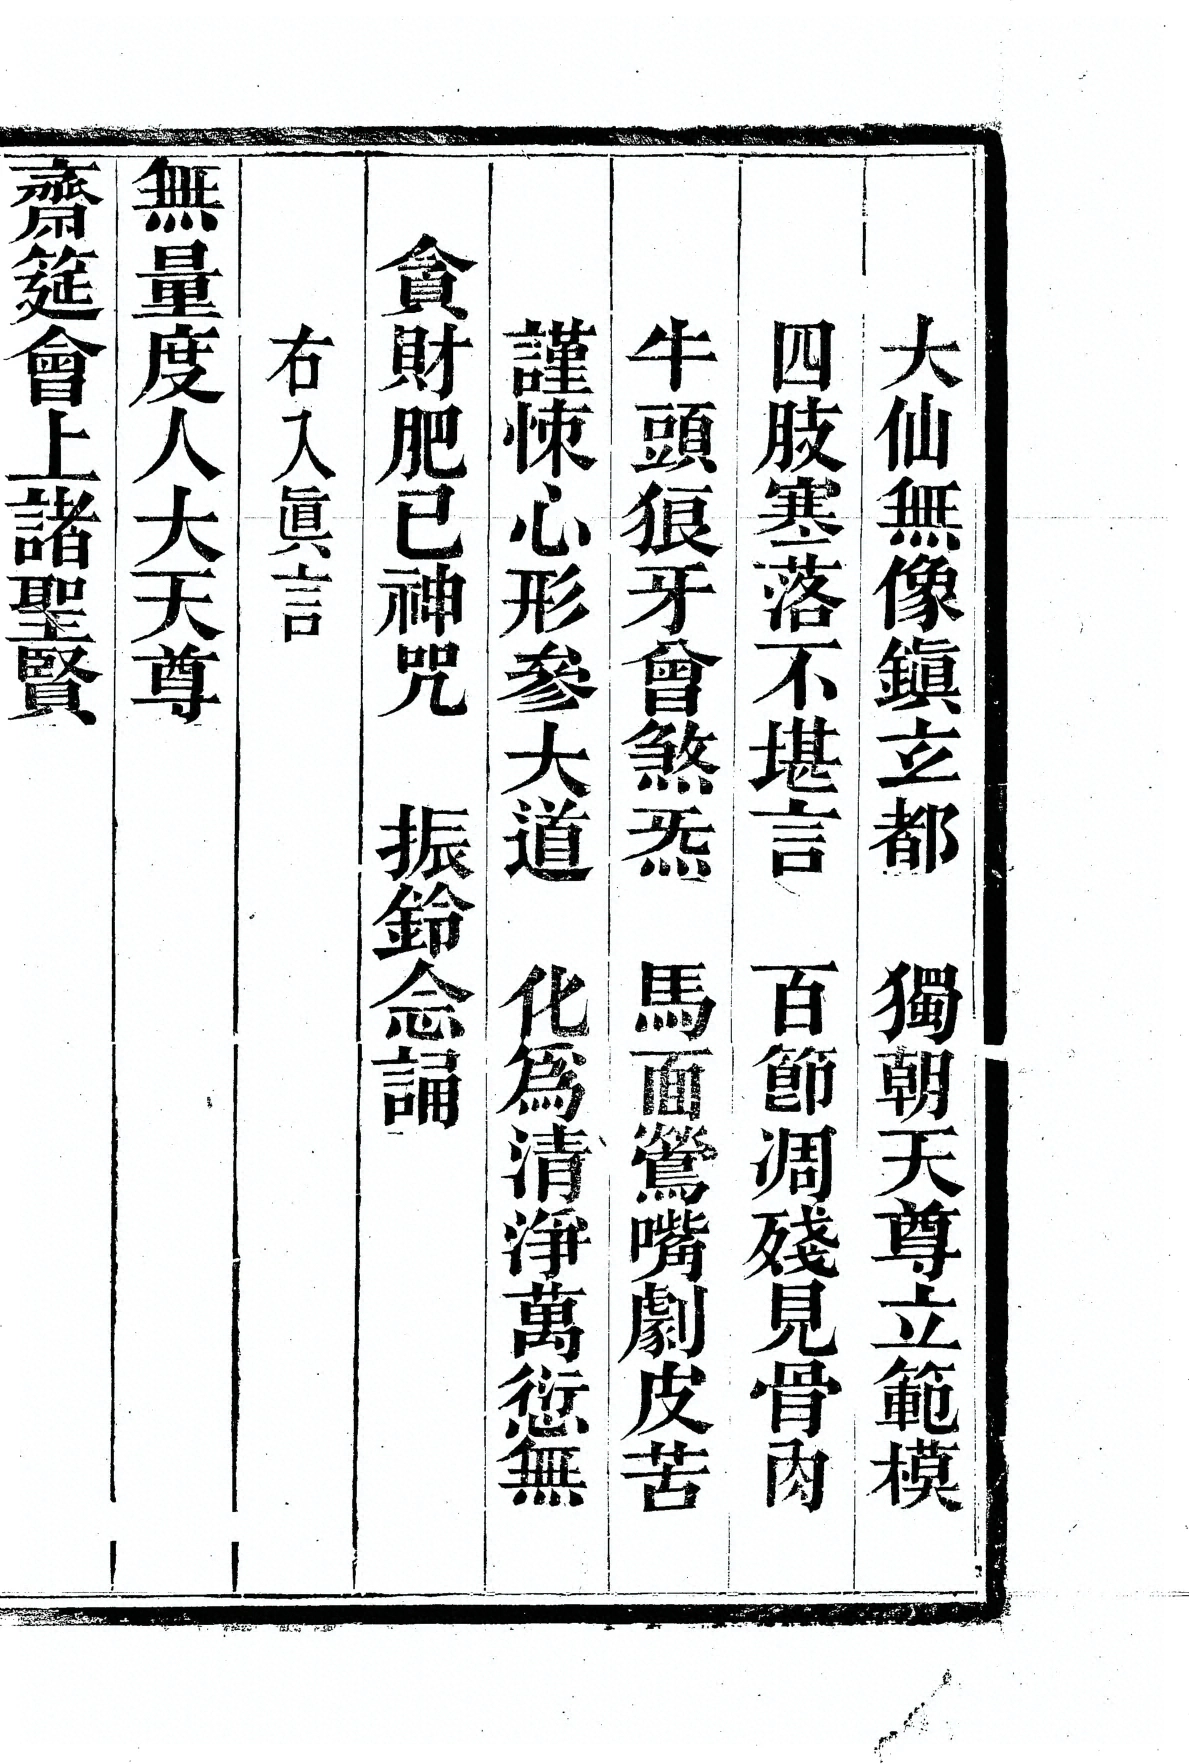 大仙無像鎭立都　獨朝天尊立範模
四肢寒落不堪言　百節凋殘見骨肉
牛頭狼牙曾煞炁　馬面鶯嘴劇皮苦
謹悚心形參大道　化爲清淨萬愆無
貪財肥已神咒　振鈴念誦
右入眞言
無量度人大天尊
齋筵會上諸聖賢